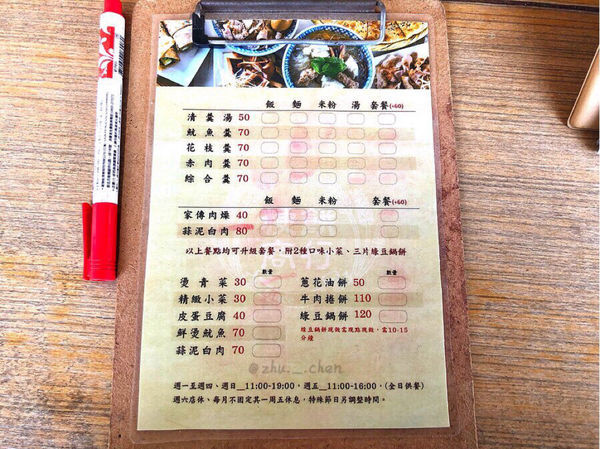 飯 麵 米粉 湯 套餐(+60)
清羹湯 50
魷魚羹 70
花枝羹 70
赤肉羹 70
綜合羹 70
飯 麵 米粉 套餐(+60)
家傳肉燥 40
蒜泥白肉 80
以上餐點均可升級套餐，附2種口味小菜、三片綠豆鍋餅
數量 數量
燙青菜 30 蔥花油餅 50
精緻小菜 30 牛肉捲餅 110
皮蛋豆腐 40 綠豆鍋餅 120
鮮燙魷魚 70 綠豆鍋餅現做需現點現做，需10-15
分鐘
蒜泥白肉 70
@zhu._.chen
週一至週四、週日__11:00-19:00，週五__11:00-16:00，(全日供餐)
週六店休、每月不固定其一周五休息，特殊節日另調整時間。